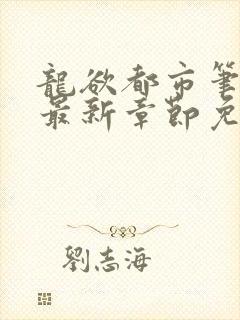 龍欲都市筆
最新章節免
劉志海